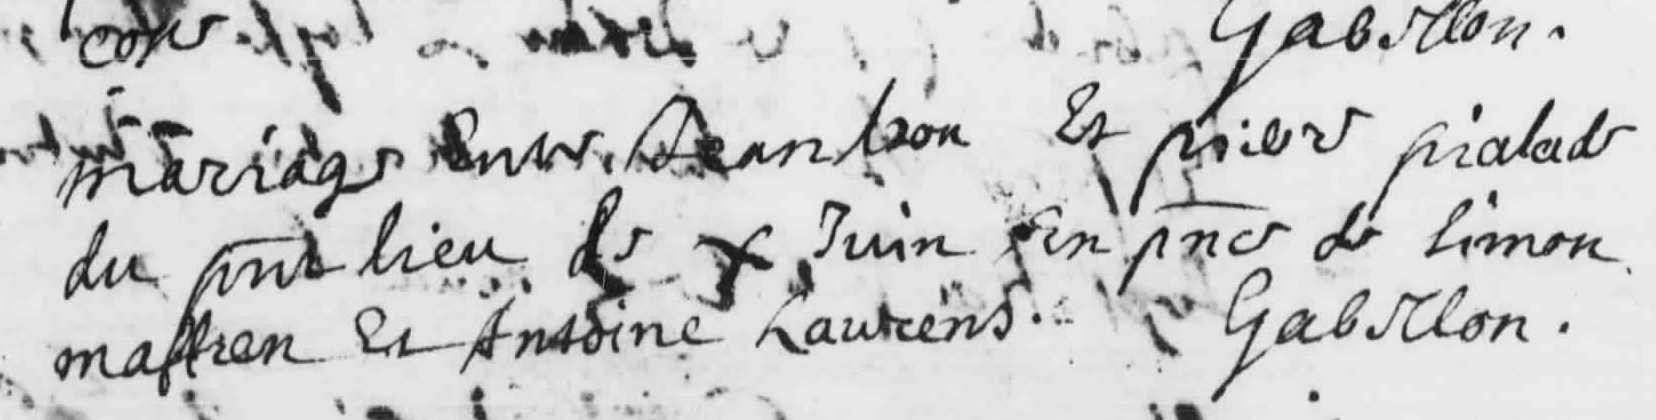 Gabillon.
mariage entre Jean bon Et pierre pialade
du pnt lieu le x Juin En pnce de Simon
mastren Et Antoine Laurens. Gabillon.